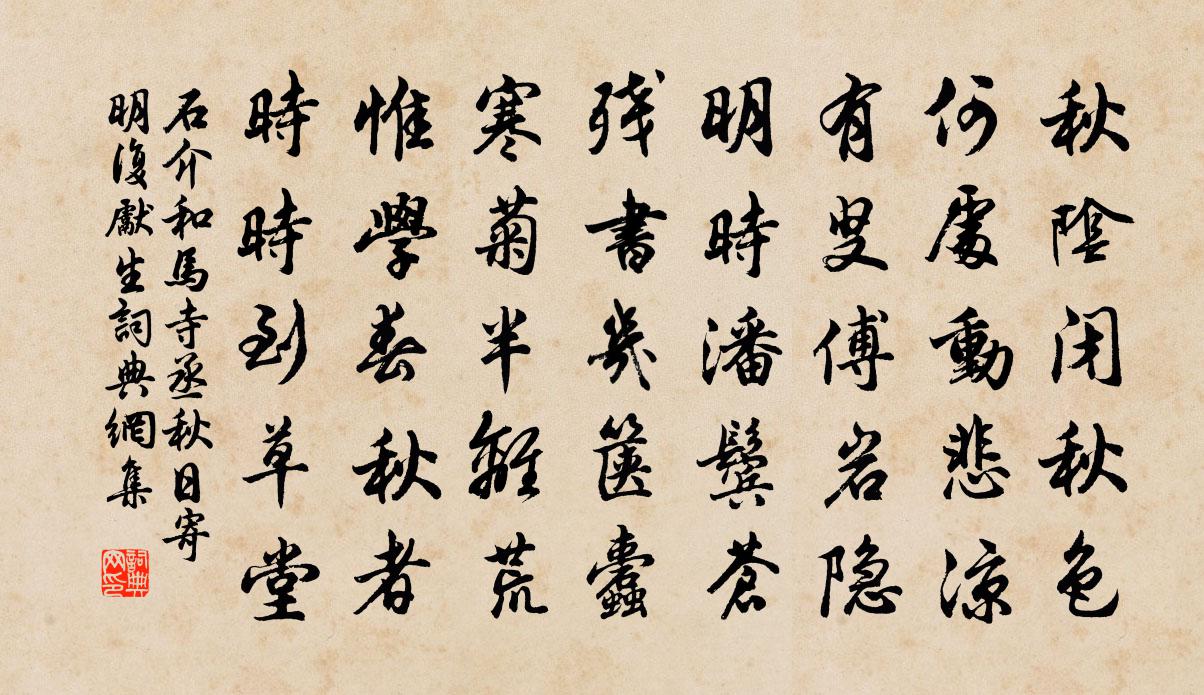 秋陰閉秋色
何處動悲涼
有叟傅岩隐
明時潘鬢蒼
残書幾篋蠹
寒菊半離荒
惟學春秋者
時時到草堂
石介和馬寺丞秋日寄
明復獻生詞典網集
詞典网印